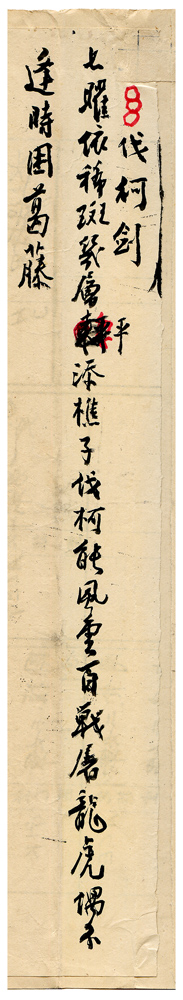 8伐柯劍
七曜依稀斑幾層平添樵子伐柯能風雲百戰屠龍虎偶不
逢時困葛藤